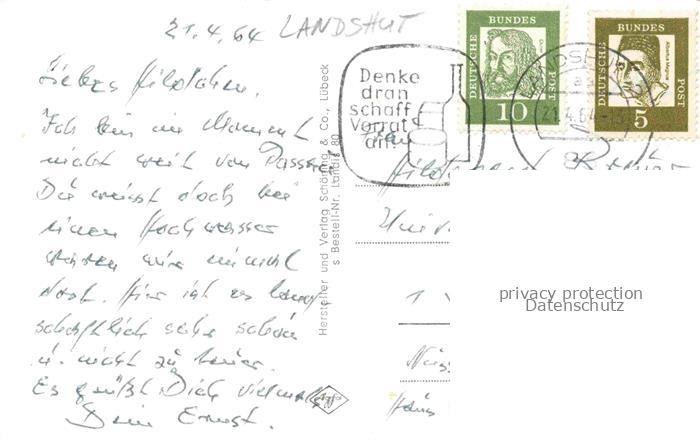 21.4.64 LANDSHUT
Liebes Hildchen.
Ich bin im Moment
nicht weit von Passau
Du weisst doch bei
einem Hochwasser
waren wir einmal
dort. Hier ist es land-
schaftlich sehr schön
u. nicht zu teuer.
Es grüßt Dich vielmals
Dein Ernst.
Hersteller und Verlag Schöning & Co., Lübeck
s Bestell-Nr. Landis 80
Agfa
Denke
dran
schaff
Vorrat
an!
DEUTSCHE BUNDES POST
10
DEUTSCHE BUNDES POST
Albertus Magnus
5
21.4.64
Frau
privacy protection
Datenschutz